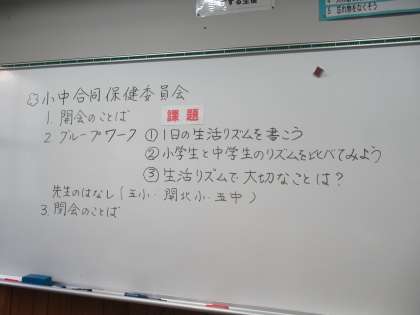 する生徒
5 忘れ物をなくそう
小中合同保健委員会
1. 開会のことば
課題
2. グループワーク ①1日の生活リズムを書こう
②小学生と中学生のリズムを比べてみよう
③生活リズムで大切なことは?
先生のはなし(五小・関北小・五中)
3. 閉会のことば